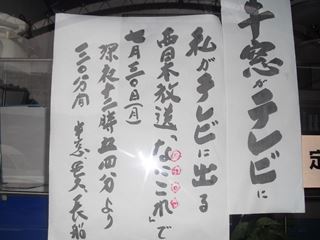 千窓がテレビに
私がテレビに出る
西日本放送「なにこれ」で
七月三〇日(月)
深夜十二時五四分より
三〇分間
定